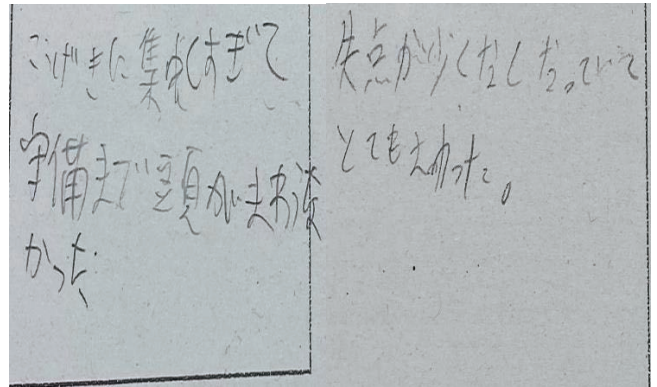 こげきに集中しすぎて
守備まで頭がまわらな
かった
失点が少くなくなっていて
とてもよかった。